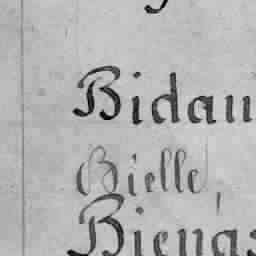 Bidau
Bielle,
Bienas